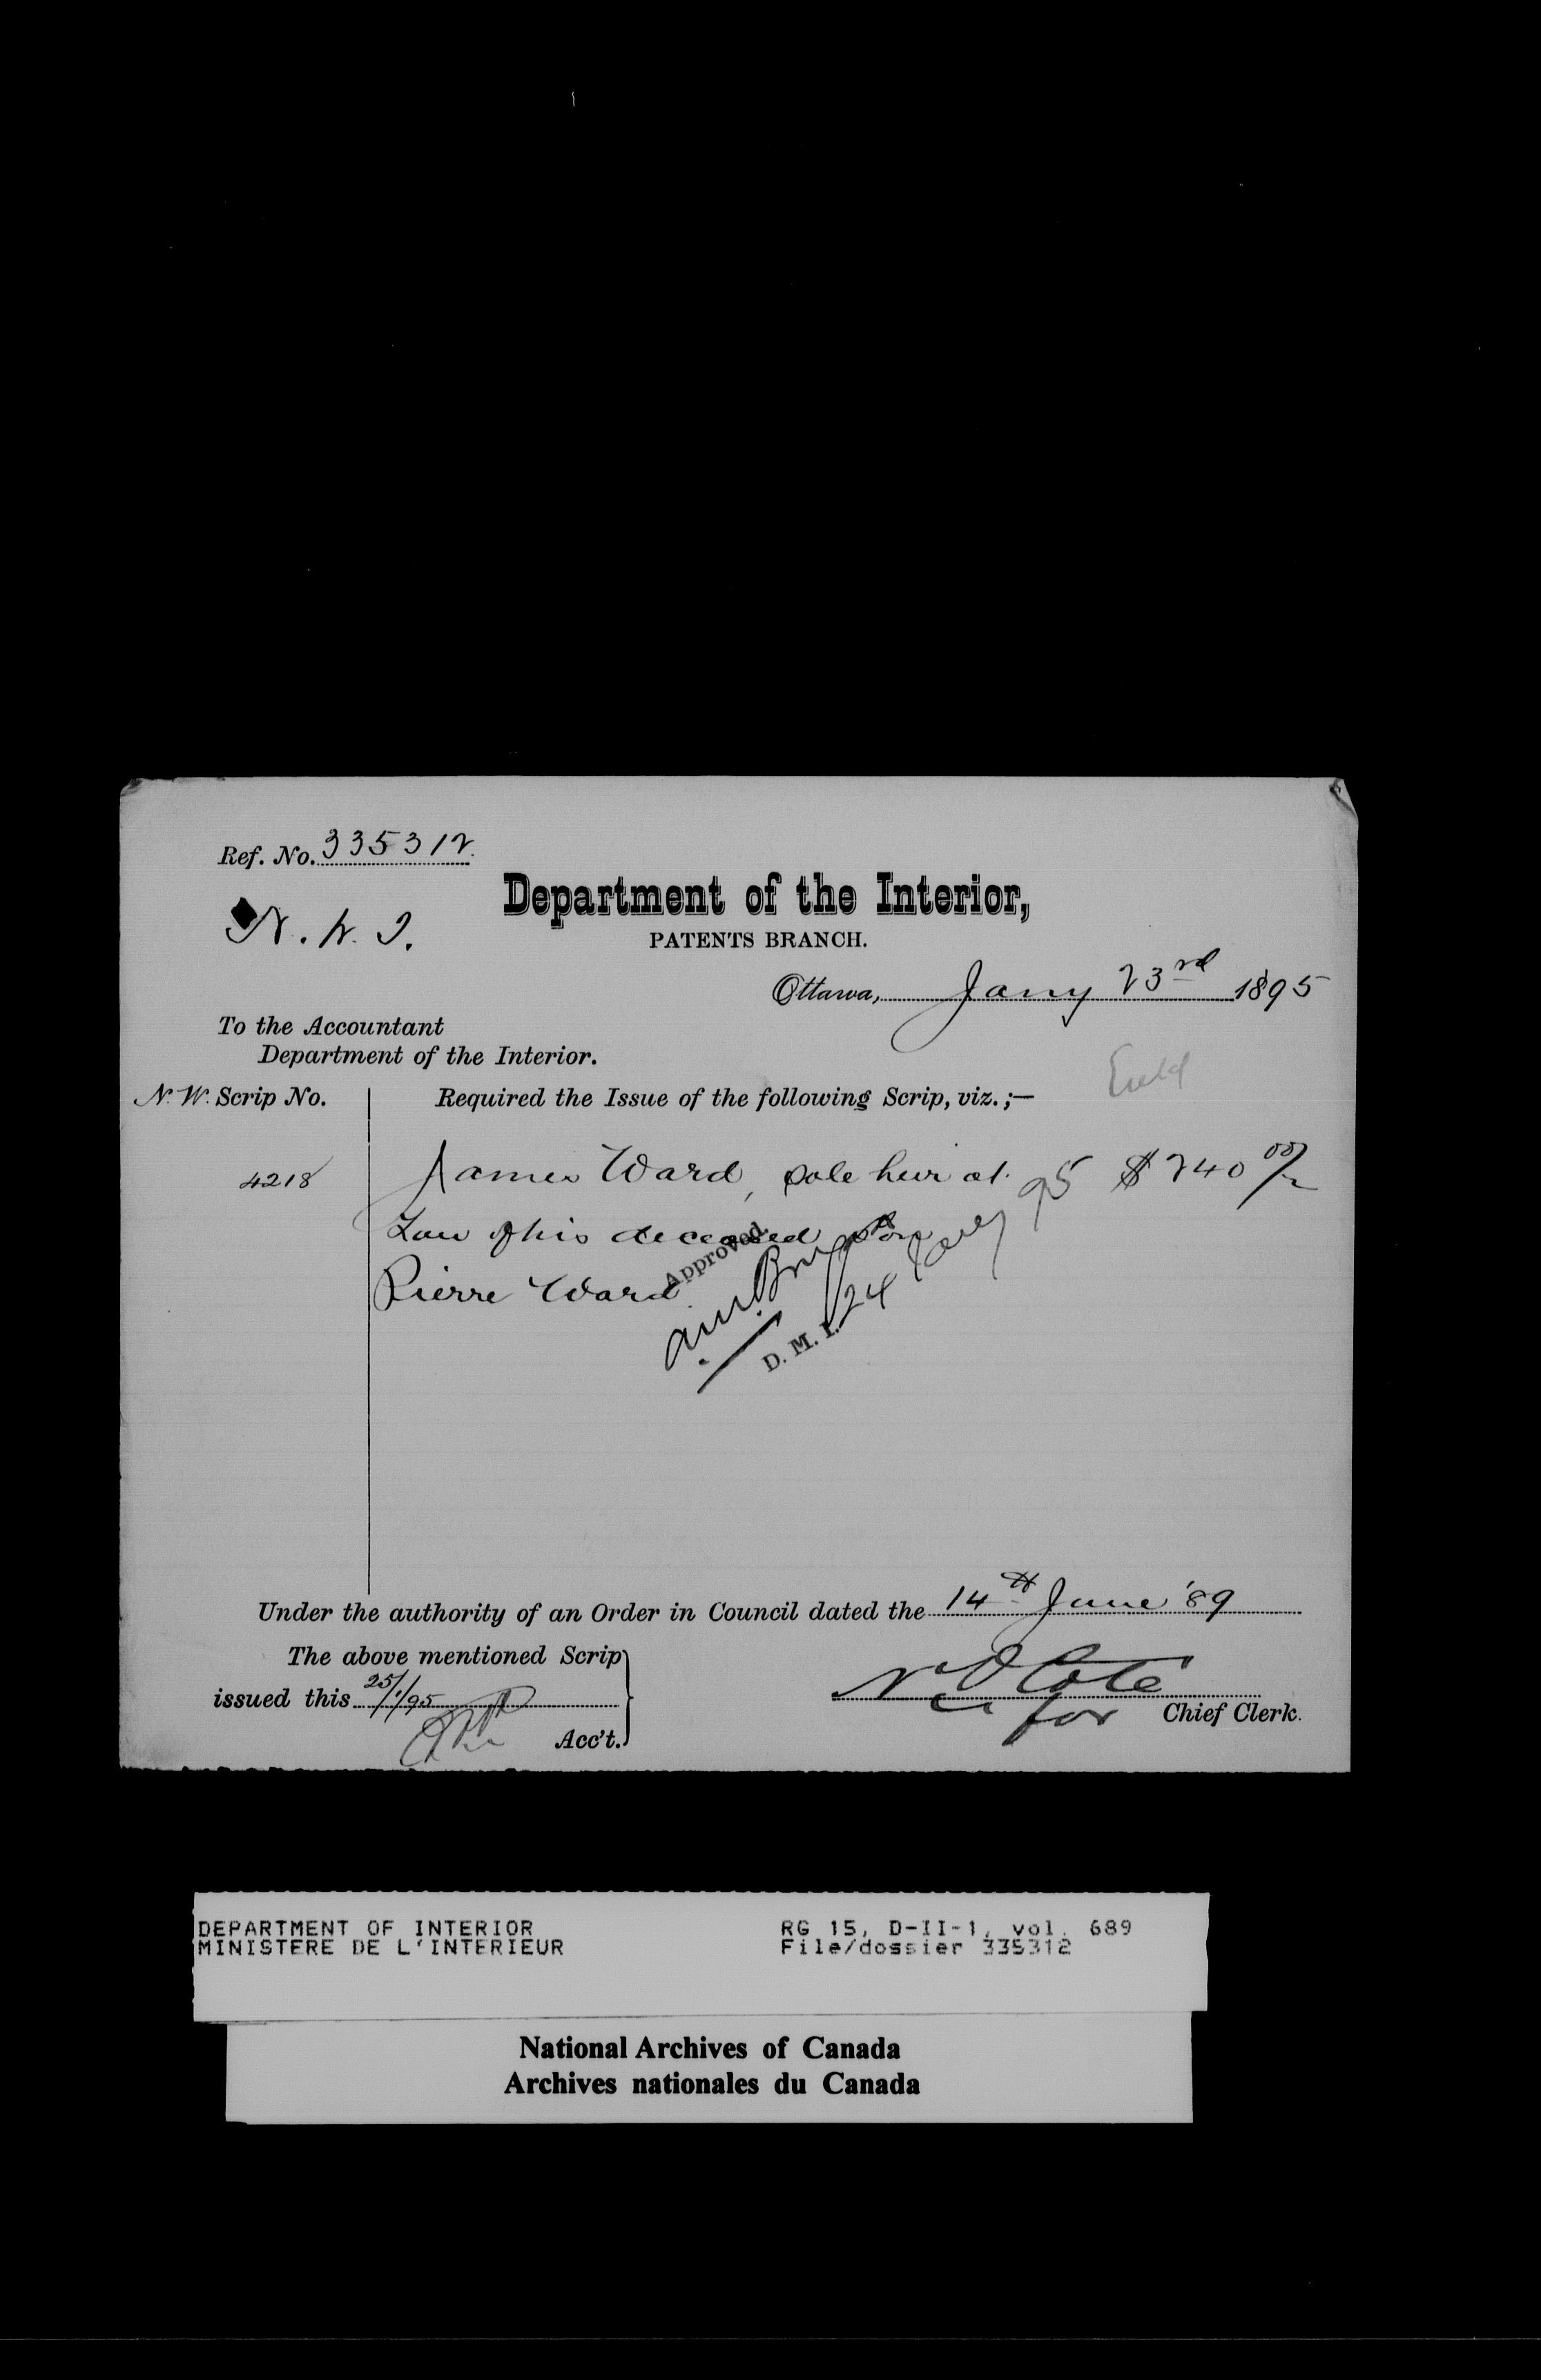 Ref. No. 335312
N. W. T.
Department of the Interior,
PATENTS BRANCH.
Ottawa, Jany 23rd 1895
To the Accountant
Department of the Interior.
N. W. Scrip No.
Required the Issue of the following Scrip, viz.;—
4218
James Ward, sole heir at $240 00/
Law of his deceased son
Pierre Ward
Approved.
D. M. I. 24 Jany 95
Under the authority of an Order in Council dated the 14th June '89
The above mentioned Scrip
issued this 25/1/95
Acc't.
N O Coté
for Chief Clerk.
DEPARTMENT OF INTERIOR
MINISTERE DE L'INTERIEUR
RG 15, D-II-1, vol. 689
File/dossier 335312
National Archives of Canada
Archives nationales du Canada